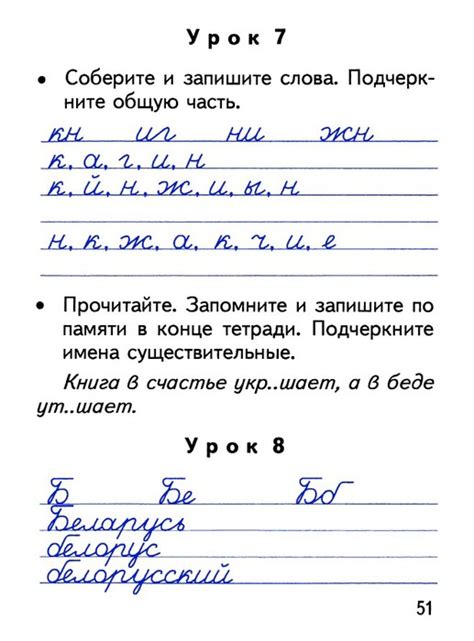 Урок 7
• Соберите и запишите слова. Подчерк-
ните общую часть.
кн иг ни жн
к, а, г, и, н
к, й, н, ж, и, ы, н
н, к, ж, а, к, ч, и, е
• Прочитайте. Запомните и запишите по
памяти в конце тетради. Подчеркните
имена существительные.
Книга в счастье укр..шает, а в беде
ут..шает.
Урок 8
Б Бе Бб
Беларусь
белорус
белорусский
51